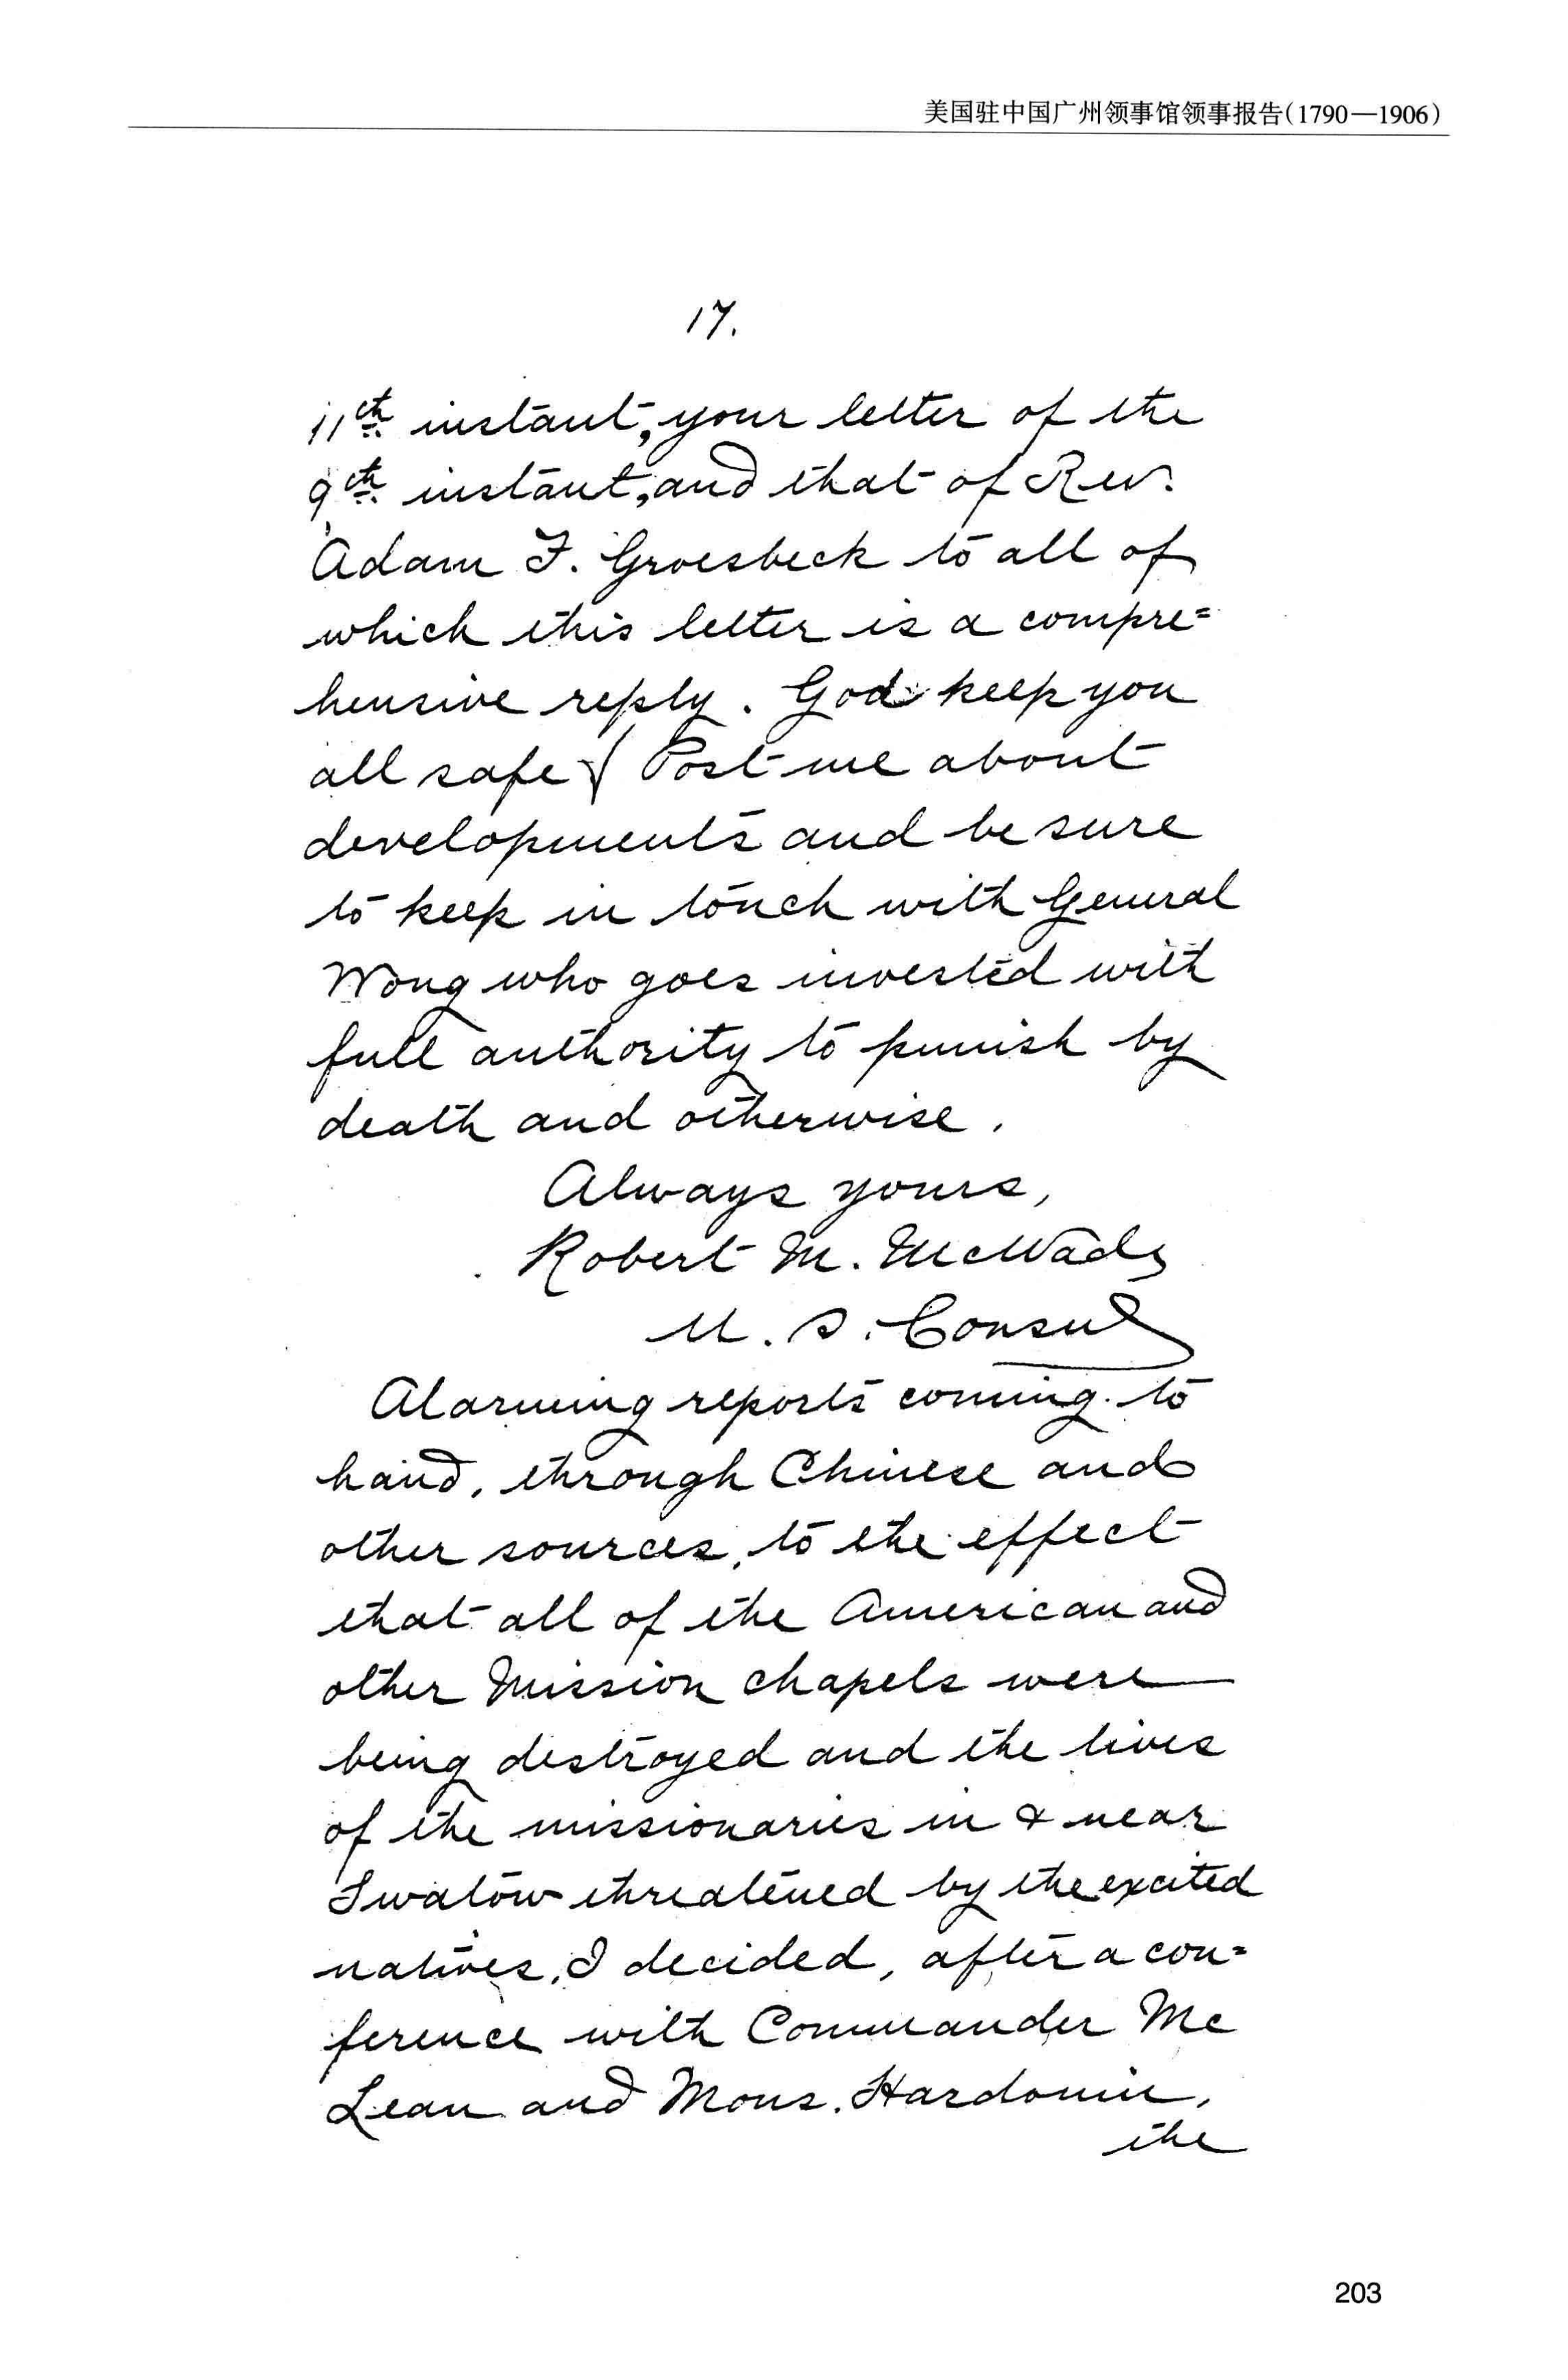 美国驻中国广州领事馆领事报告(1790—1906)
17.
11th instant, your letter of the
9th instant, and that of Rev.
Adam F. Groesbeck to all of
which this letter is a compre=
hensive reply. God keep you
all safe! Post me about
developments and be sure
to keep in touch with General
Wong who goes invested with
full authority to punish by
death and otherwise.
Always yours,
Robert M. McWade
U. S. Consul
Alarming reports coming to
hand, through Chinese and
other sources, to the effect
that all of the American and
other Mission chapels were
being destroyed and the lives
of the missionaries in & near
Swatow threatened by the excited
natives, I decided, after a con=
ference with Commander Mc
Lean and Mons. Hardouin,
the
203